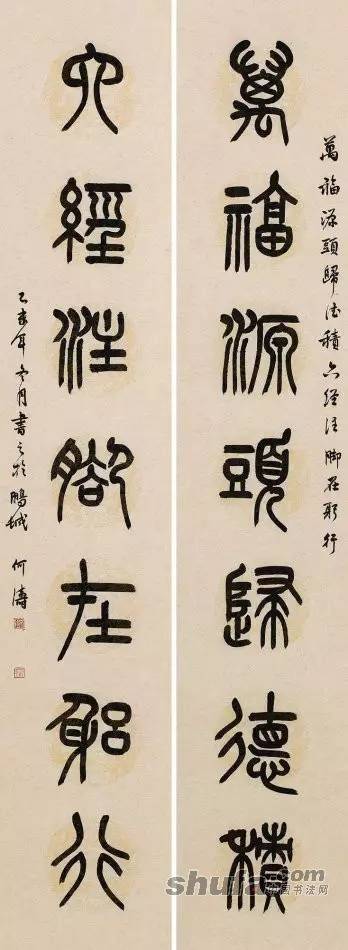 萬福源頭歸德積六經注腳在躬行
萬福源頭歸德積
六經注腳在躳行
乙未年冬月書之於鵬城 何濤
shufa.com
中国书法网